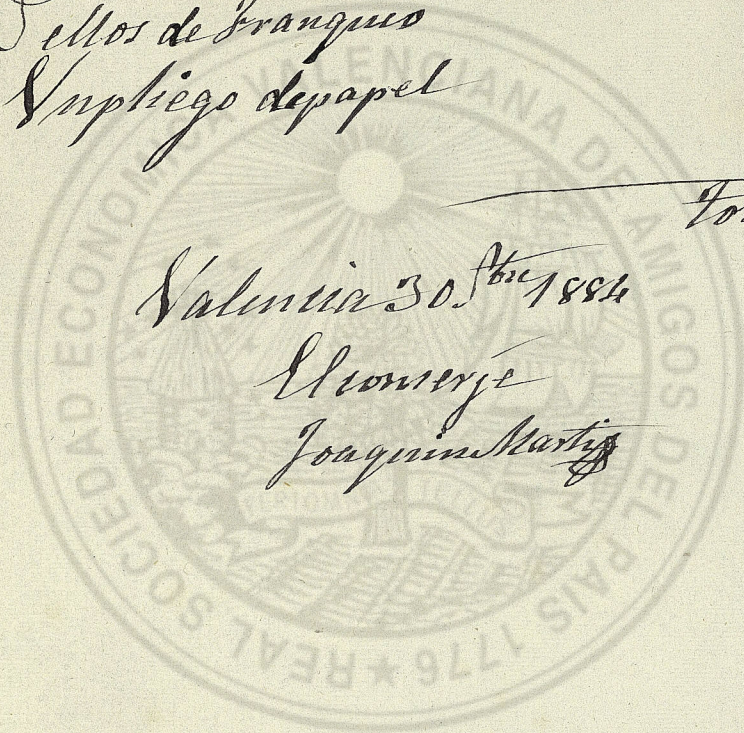 Sellos de Franqueo
Un pliego de papel
To
Valencia 30 Sbre 1884
El conserje
Joaquin Martiz
REAL SOCIEDAD ECONOMICA VALENCIANA DE AMIGOS DEL PAIS 1776 ★